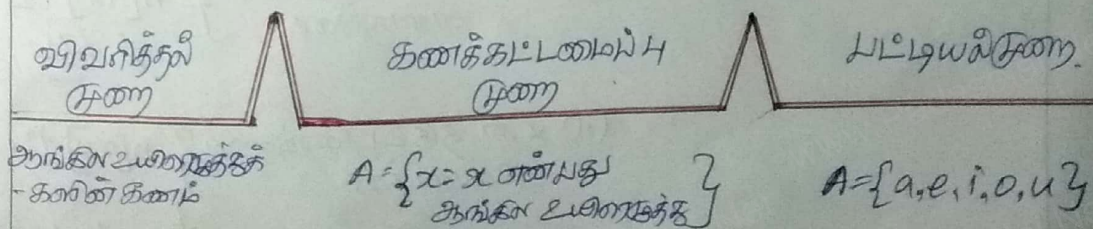 விவரித்தல்
முறை
கணக்கட்டமைப்பு
முறை
பட்டியல்முறை.
ஆங்கில உயிரெழுத்துக்
-களின் கணம்
A={x=x என்பது
ஆங்கில உயிரெழுத்து}
A={a,e,i,o,u}